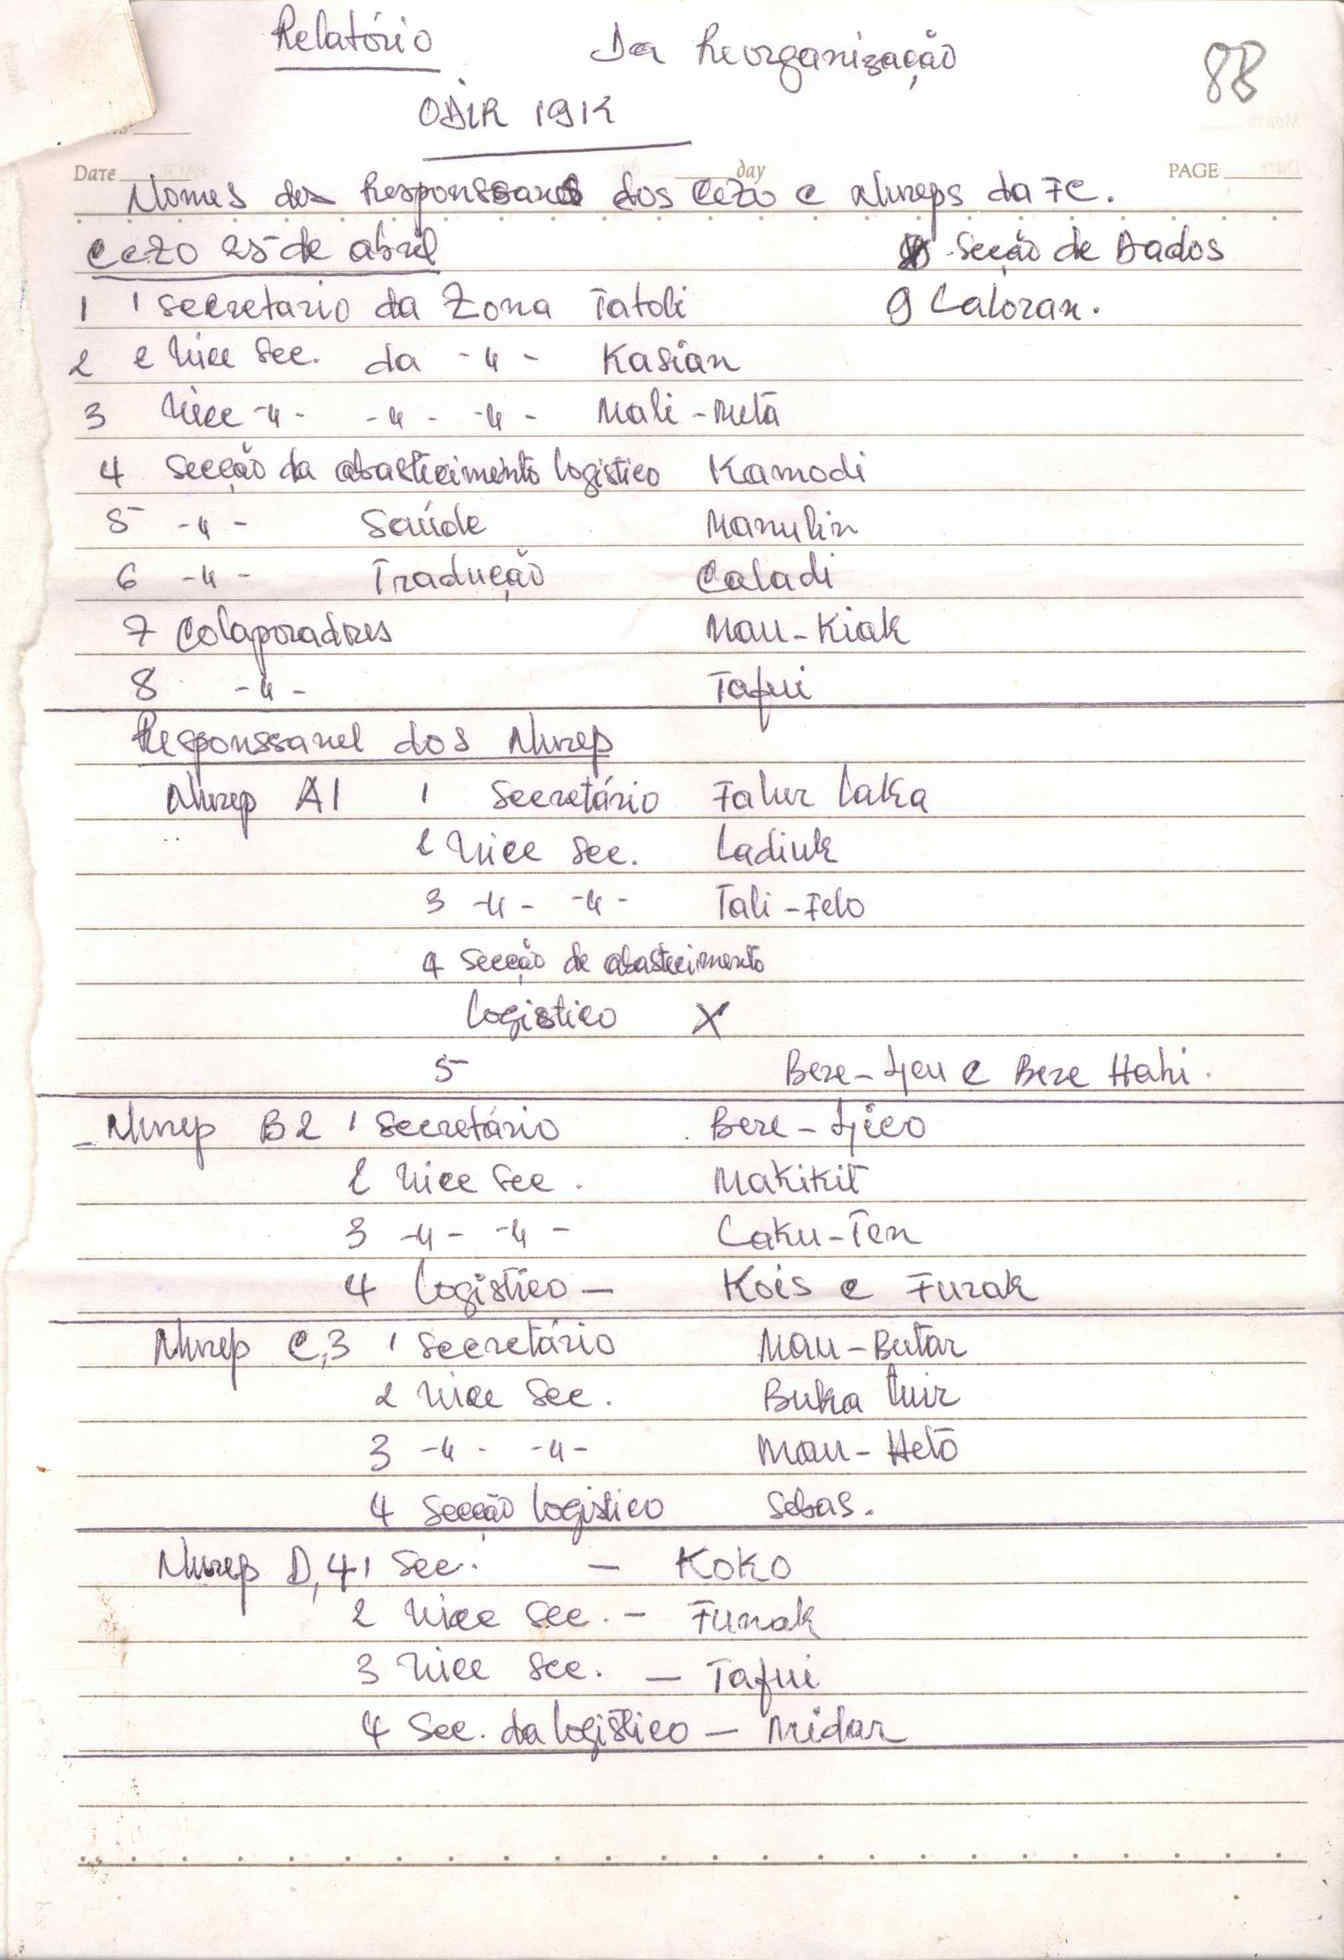 Relatório Da Reorganização
88
ODIR 1912
Date day PAGE
Nomes dos Responssaveis dos CeZo e Nureps da FC.
CeZo 25 de abril Secção de Dados
1 1 Secretario da Zona Tatoli 9 Caloran.
2 2 Vice Sec. da -4- Kasian
3 Vice -4- -4- -4- Mali-Metã
4 Secção da abastecimento logistico Kamodi
5 -4- Saúde Manulin
6 -4- Tradução Caladi
7 Colaporadores Mau-Kiak
8 -4- Tafui
Responssavel dos Nurep
Nurep A1 1 Secretário Falur Laka
2 Vice Sec. Ladiuk
3 -4- -4- Tali-Felo
4 Secção de abastecimento
logistico X
5 Bere-Leu e Bere Hahi.
Nurep B2 1 Secretário Bere-Lico
2 Vice Sec. Makikit
3 -4- -4- Laku-Ten
4 Logistico - Kois e Furak
Nurep C,3 1 Secretário Mau-Butar
2 Vice Sec. Buka Luir
3 -4- -4- Mau-Hetō
4 Secção logistico Sebas.
Nurep D,4 1 Sec. - KoKo
2 Vice Sec. - Funak
3 Vice Sec. - Tafui
4 Sec. da logistico - Nridar